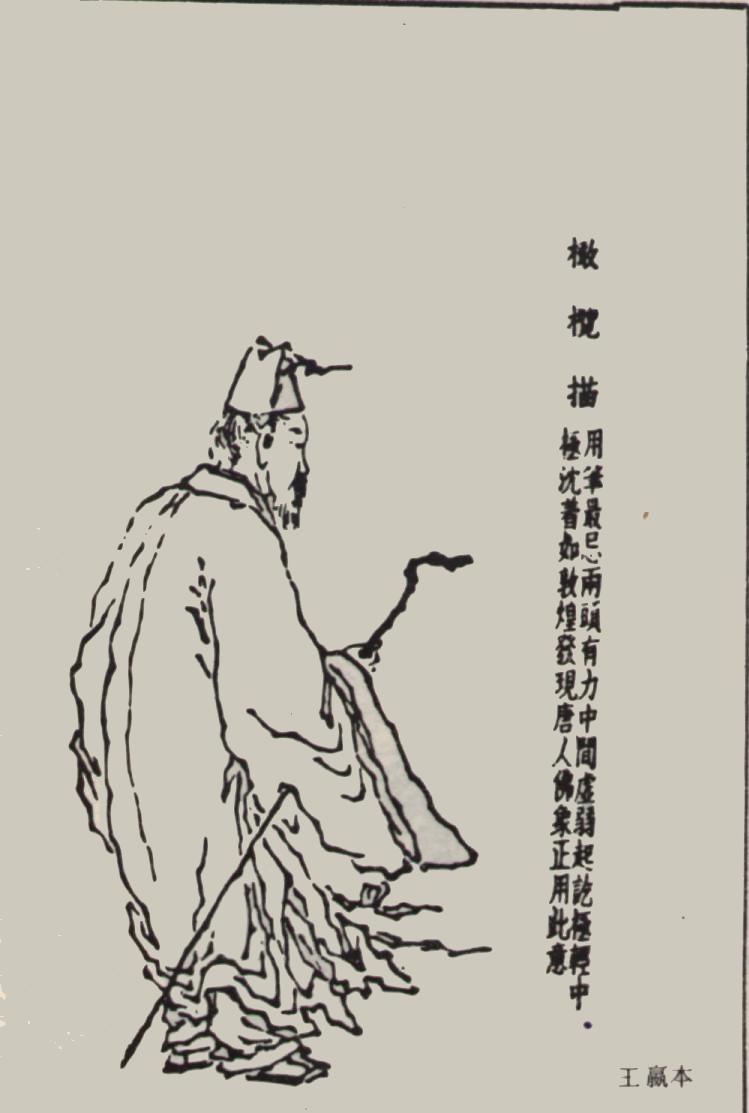 橄欖描
用筆最忌兩頭有力中間虛弱起訖極輕中
極沈著如敦煌發現唐人佛象正用此意
王嬴本